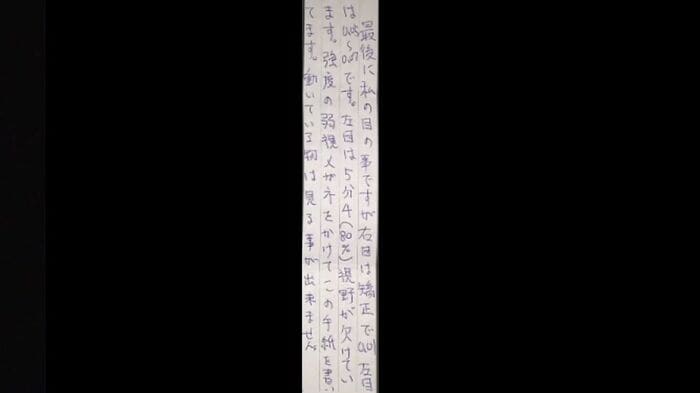 最後に私の目の事ですが右目は矯正で0.01左目
は0.05〜0.07です。左目は5分4(80%)視野が欠けてい
ます。強度の弱視メガネをかけてこの手紙を書い
てます。動いている物は見る事が出来ません。